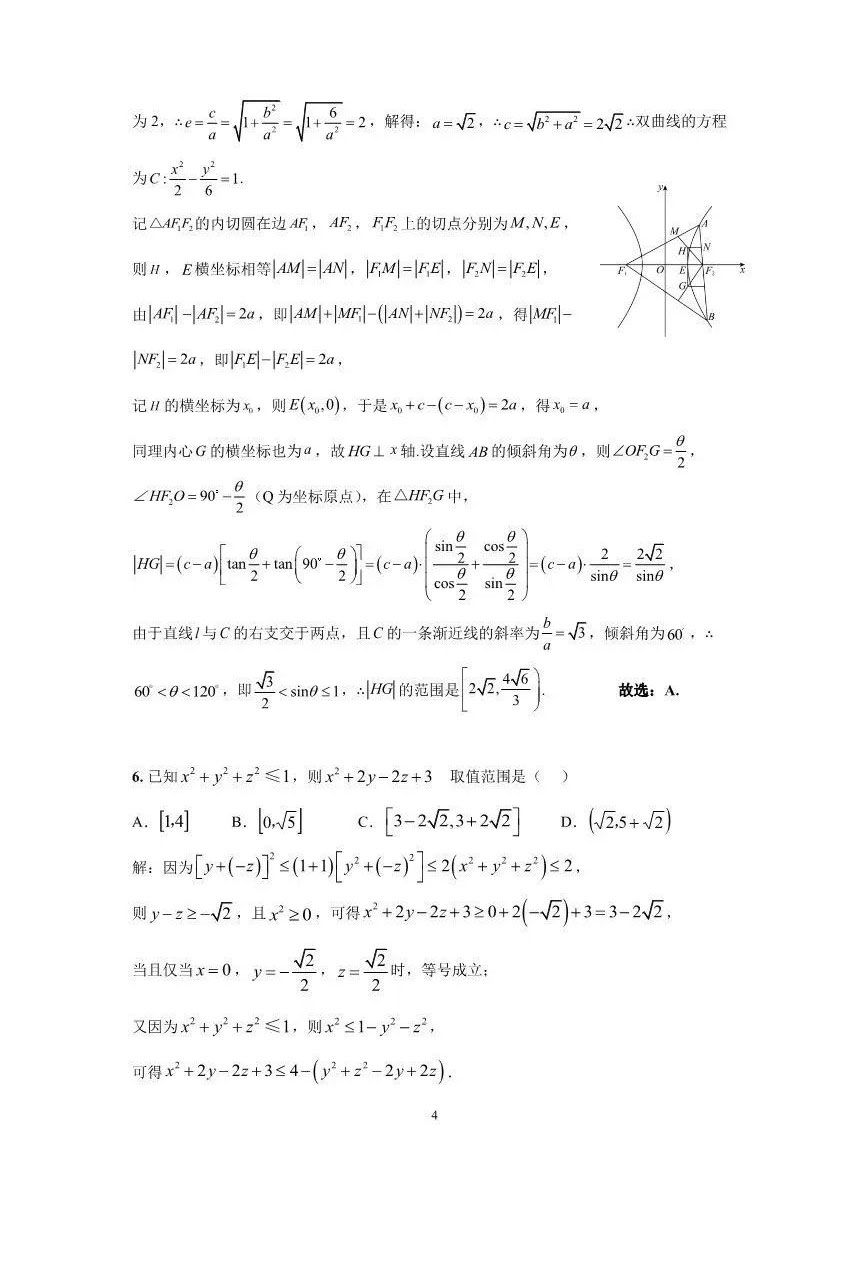 为 2，∴e=c/a=√(1+b²/a²)=√(1+6/a²)=2，解得：a=√2，∴c=√(b²+a²)=2√2∴双曲线的方程
为C:x²/2−y²/6=1.
记△AF₁F₂的内切圆在边 AF₁，AF₂，F₁F₂上的切点分别为M,N,E，
则H，E横坐标相等|AM|=|AN|，|F₁M|=|F₁E|，|F₂N|=|F₂E|，
由|AF₁|−|AF₂|=2a，即|AM|+|MF₁|−(|AN|+|NF₂|)=2a，得|MF₁|−
|NF₂|=2a，即|F₁E|−|F₂E|=2a，
记H的横坐标为x₀，则E(x₀,0)，于是x₀+c−(c−x₀)=2a，得x₀=a，
同理内心G的横坐标也为a，故HG⊥x轴.设直线AB的倾斜角为θ，则∠OF₂G=θ/2，
∠HF₂O=90°−θ/2（Q为坐标原点），在△HF₂G中，
|HG|=(c−a)[tan θ/2+tan(90°−θ/2)]=(c−a)·(sin θ/2 / cos θ/2+cos θ/2 / sin θ/2)=(c−a)·2/sinθ=2√2/sinθ，
由于直线l与C的右支交于两点，且C的一条渐近线的斜率为b/a=√3，倾斜角为60°，∴
60°<θ<120°，即√3/2<sinθ≤1，∴|HG|的范围是[2√2,4√6/3).
故选：A.
y
A
M
H
N
F₁
O
E
F₂
x
G
B
6. 已知x²+y²+z²≤1，则x²+2y−2z+3 取值范围是（ ）
A．[1,4] B．[0,√5] C．[3−2√2,3+2√2] D．(√2,5+√2)
解：因为[y+(−z)]²≤(1+1)[y²+(−z)²]≤2(x²+y²+z²)≤2，
则y−z≥−√2，且x²≥0，可得x²+2y−2z+3≥0+2(−√2)+3=3−2√2，
当且仅当x=0，y=−√2/2，z=√2/2时，等号成立；
又因为x²+y²+z²≤1，则x²≤1−y²−z²，
可得x²+2y−2z+3≤4−(y²+z²−2y+2z)．
4